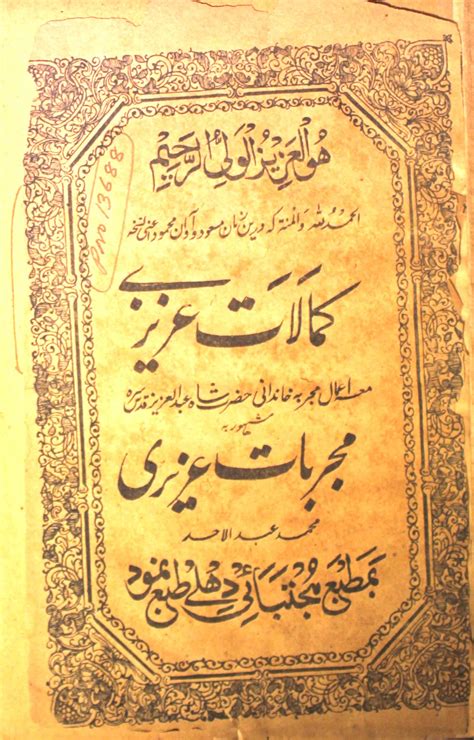 هو العزیز الولی الرحیم
الحمد للہ والمنہ کہ درین زمان مسعود و آوان محمود اعنی نسخہ
کمالات عزیزی
معہ اعمال مجربہ خاندانی حضرت شاہ عبد العزیز قدس سرہ
مشہور بہ
مجربات عزیزی
محمد عبد الاحد
بمطبع مجتبائی دہلی طبع نمود
PNO 13688